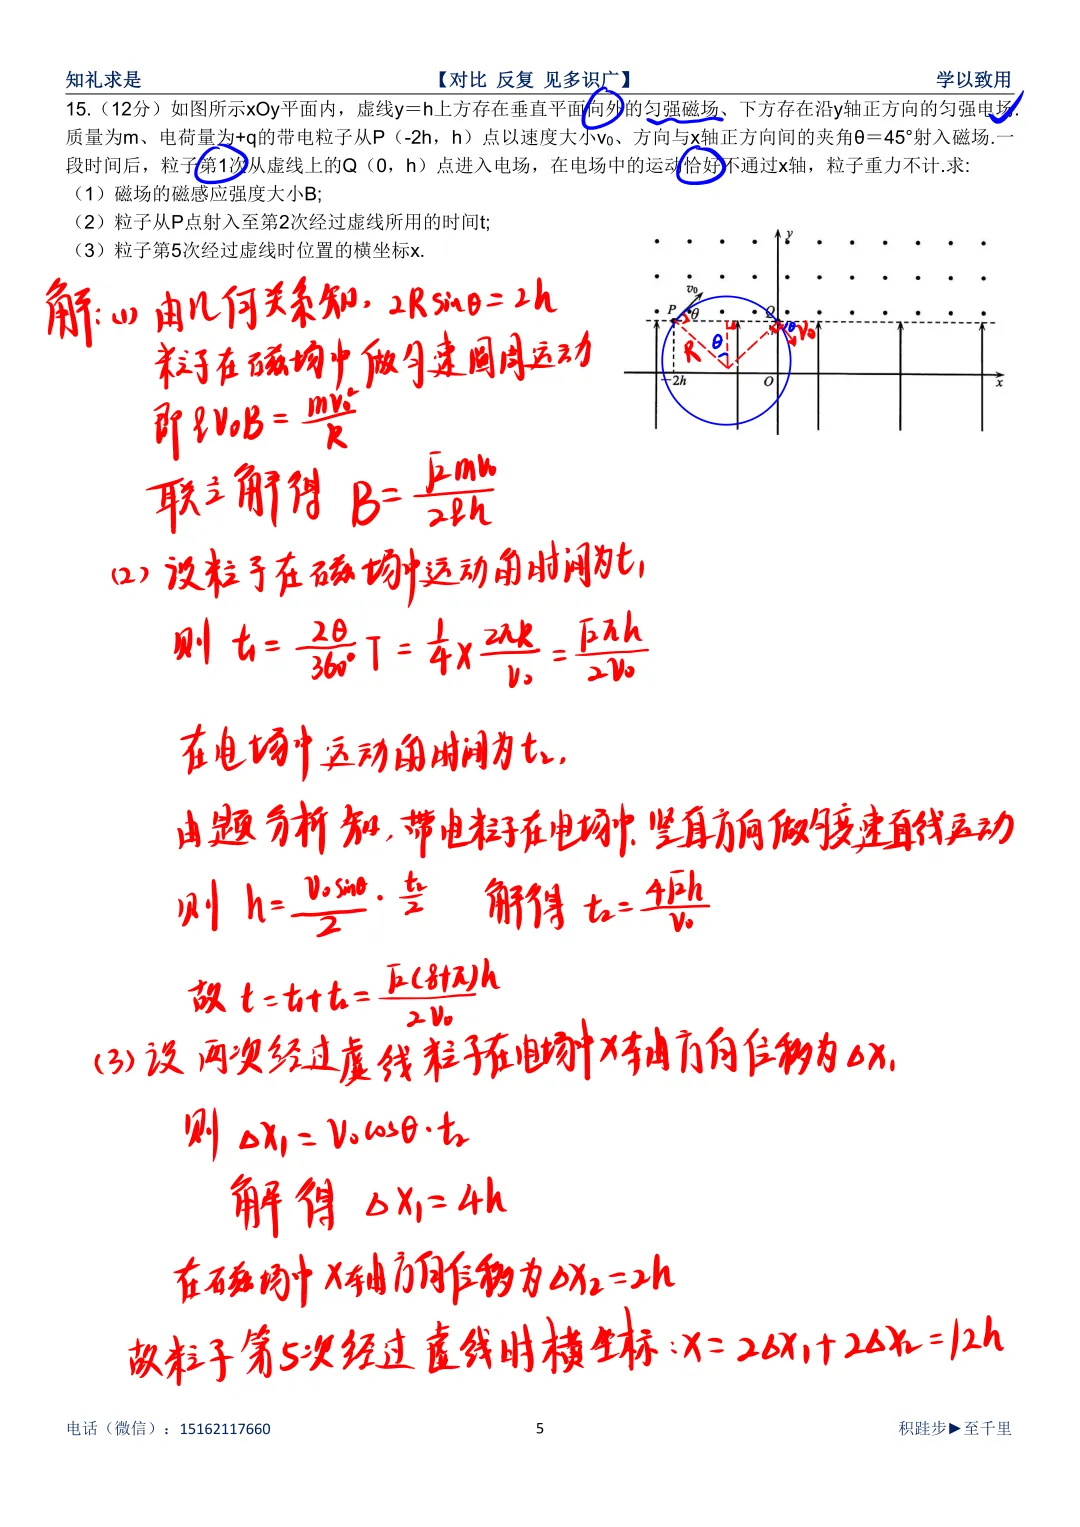 知礼求是 【对比 反复 见多识广】 学以致用
15.（12分）如图所示xOy平面内，虚线y＝h上方存在垂直平面向外的匀强磁场、下方存在沿y轴正方向的匀强电场.
质量为m、电荷量为+q的带电粒子从P（-2h，h）点以速度大小v₀、方向与x轴正方向间的夹角θ＝45°射入磁场.一
段时间后，粒子第1次从虚线上的Q（0，h）点进入电场，在电场中的运动恰好不通过x轴，粒子重力不计.求:
（1）磁场的磁感应强度大小B;
（2）粒子从P点射入至第2次经过虚线所用的时间t;
（3）粒子第5次经过虚线时位置的横坐标x.
y
v₀
P θ Q θ v₀
R θ
-2h O x
解: (1) 由几何关系知, 2Rsinθ=2h
粒子在磁场中做匀速圆周运动
即qv₀B = mv₀²/R
联立解得 B= √2mv₀/2qh
(2) 设粒子在磁场中运动的时间为t₁
则 t₁= 2θ/360° T = 1/4 × 2πR/v₀ = √2πh/2v₀
在电场中运动的时间为t₂,
由题分析知, 带电粒子在电场中, 竖直方向做匀变速直线运动
则 h= v₀sinθ/2 · t₂/2 解得 t₂= 4√2h/v₀
故 t=t₁+t₂= √2(8+π)h/2v₀
(3) 设两次经过虚线粒子在电场中x轴方向位移为Δx₁
则 Δx₁=v₀cosθ·t₂
解得 Δx₁=4h
在磁场中x轴方向位移为Δx₂=2h
故粒子第5次经过虚线时横坐标:x=2Δx₁+2Δx₂=12h
电话（微信）：15162117660 5 积跬步►至千里